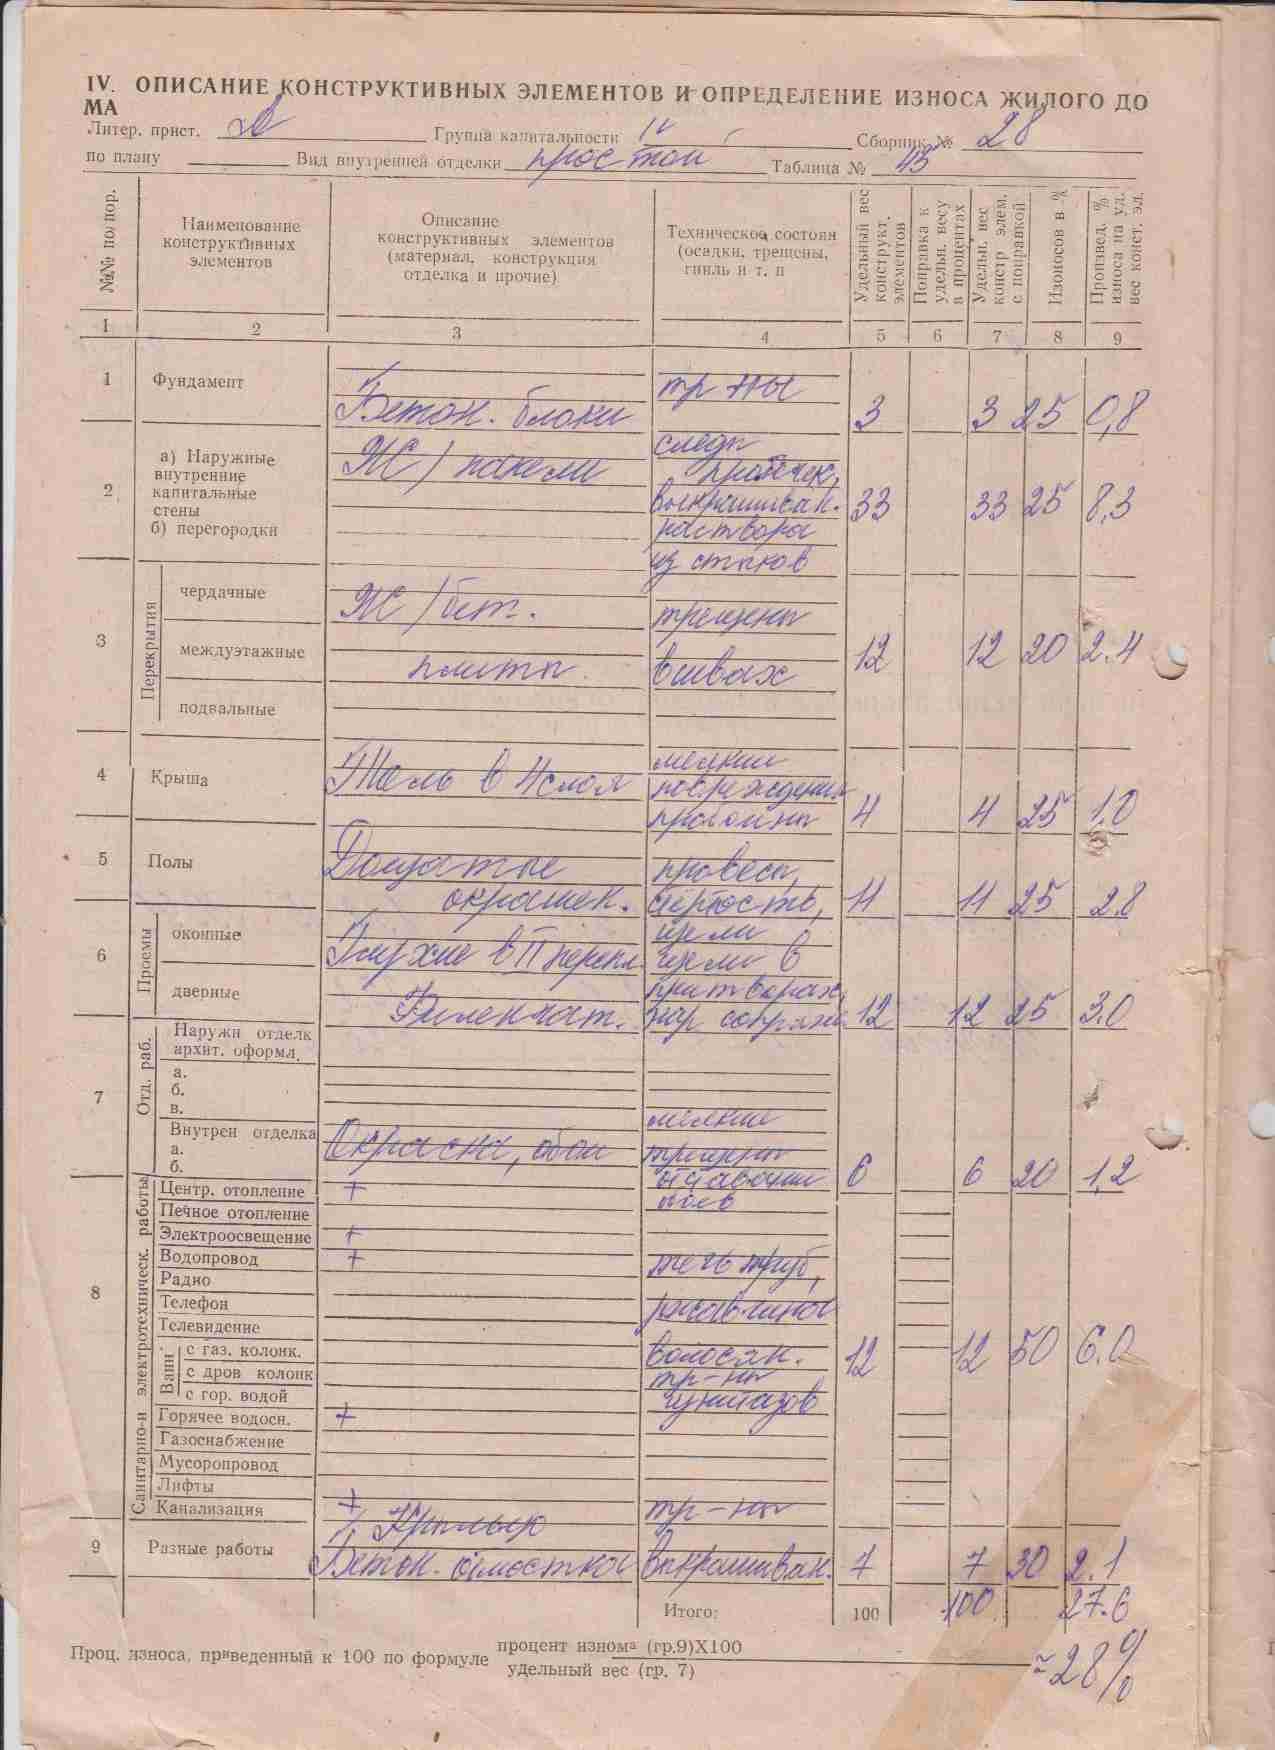 IV. ОПИСАНИЕ КОНСТРУКТИВНЫХ ЭЛЕМЕНТОВ И ОПРЕДЕЛЕНИЕ ИЗНОСА ЖИЛОГО ДО
МА
Литер. прист. А Группа капитальности IV Сборник № 28
по плану Вид внутренней отделки простой Таблица № 43
№№ по пор.
Наименование конструктивных элементов
Описание конструктивных элементов (материал, конструкция отделка и прочие)
Техническое состоян (осадки, трещены, гниль и т. п
Удельный вес конструкт. элементов
Поправка к удельн. весу в процентах
Удельн. вес констр элем. с поправкой
Изоносов в %
Произвед. % износа на уд. вес конст. эл.
1 2 3 4 5 6 7 8 9
1 Фундамент Бетон. блоки тр-ны 3 3 25 0,8
2 а) Наружные внутренние капитальные стены б) перегородки
Ж/ панели следы протечек, выкрашиван. раствора из стыков 33 33 25 8,3
3 Перекрытия
чердачные Ж/бет. трещены
междуэтажные плиты в швах 12 12 20 2.4
подвальные
4 Крыша Толь в 4 слоя мелкии повреждения пробоины 4 4 25 1.0
5 Полы Дощатые окрашен. провесы, стертость, щели 11 11 25 2.8
6 Проемы
оконные Глухие в II перепл щели в
дверные Филенчат. притворах, 12 12 25 3.0
7 Отд. раб.
Наружн отделк архит. оформл.
а.
б.
в.
Внутрен отделка
а. Окраска, обои мелкие трещены
б. 6 6 20 1,2
8 Санитарно-и электротехническ. работы
Центр. отопление +
Печное отопление
Электроосвещение +
Водопровод + течь труб,
Радио
Телефон ржавчина
Телевидение
Ванн
с газ. колонк. волосян. 12 12 50 6.0
с дров колонк тр-ны
с гор. водой унитазов
Горячее водосн. +
Газоснабжение
Мусоропровод
Лифты
Канализация + тр-ны
9 Разные работы Крыльцо
Бетон. отмостка выкрашиван. 7 7 30 2.1
Итого: 100 100 27.6
Проц. износа, приведенный к 100 по формуле процент износа (гр.9)X100
удельный вес (гр. 7)
≈ 28%